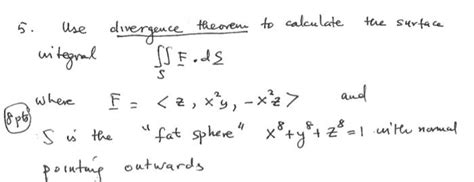 5. Use divergence theorem to calculate the surface
integral ∬_S F̲ . dS̲
where F̲ = < z , x²y , -x²z > and
8 pts
S is the "fat sphere" x⁸+y⁸+z⁸=1 with normal
pointing outwards